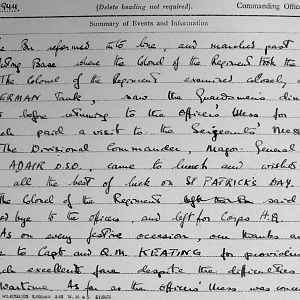 1944
(Delete heading not required).
Commanding Officer
Summary of Events and Information
he Bn reformed into line, and marched past
Base, where the Colonel of the Regiment took the
The Colonel of the Regiment examined closely
ERMAN Tank, saw the Guardsmen's din
before returning to the Officers' Mess, for
ch paid a visit to the Sergeants' Mess
The Divisional Commander, Major-General
ADAIR D.S.O., came to lunch and wished
all the best of luck on St PATRICK'S DAY.
The Colonel of the Regiment said
bye to the officers, and left for Corps H.Q.
As on every festive occasion, our thanks were
to Capt and Q.M. KEATING for providing
ch excellent fare despite the difficulties
wartime. As far as the officers' Mess was concer